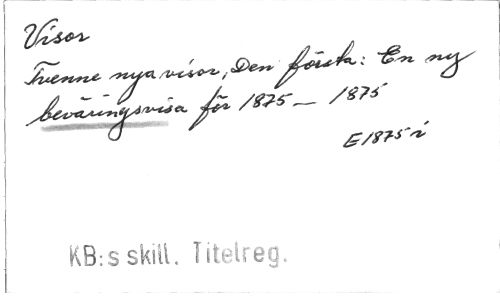 Visor
Tvenne nya visor, Den första: En ny
beväringsvisa för 1875 — 1875
E1875i
KB:s skill. Titelreg.